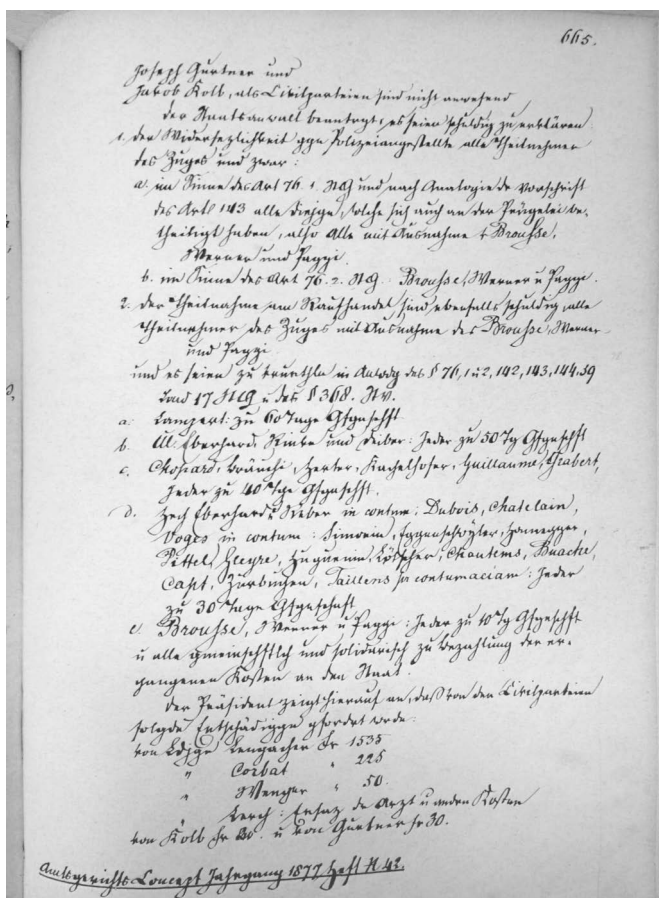 665.
Joseph Gurtner und
Jakob Kolb, als Civilparteien sind nicht anwesend
Der Staatsanwalt beantragt, es seien schuldig zu erklären:
1. der Widersezlichkeit ggn Polizeiangestellte alle Theilnehmer
des Zuges und zwar:
a. im Sinne des Art 76. 1. StG und nach Analogie de Vorschrift
des Artl 143 alle diejge, welche sich auch an der Prügelei be-
theiligt haben, also Alle mit Ausnahme v Brousse,
Werner und Paggi.
b. im Sinne des Art 76. 2. StG. Brousse, Werner u Paggi.
2. der Theilnahme am Raufhandel sind ebenfalls schuldig, alle
Theilnehmer des Zuges mit Ausnahme des Brousse, Werner
und Paggi
und es seien zu verurthln in Anwdg des § 76, 1 u 2, 142, 143, 144. 59
und 17 StG u des § 368. StV.
a. Lampert: zu 60 Tage Gfgnschft
b. Ul. Eberhardt, Rinke und Deiber: Jeder zu 50 Tg Gfgnschft
c. Chopard, Bräuchi, Herter, Kachelhofer, Guillaume, Grabert,
Jeder zu 40 Tge Gfgnschft.
d. Eberhardt, in contum: Dubois, Chatelain,
Voges in contum: Simonin, Eggenschwyler, Hornegger,
Pittet, Gleyre, Huguenin, Lötscher, Chautems, Buache,
Capt, Zurbuchen, Taillens in contumaciam: Jeder
zu 30 Tage Gfgnschaft
e. Brousse, Werner u Paggi: Jeder zu 10 Tg Gfgnschft
u alle gmeinschftlch und solidarisch zu Bezahlung der er-
gangenen Kosten an den Staat.
Der Präsident zeigt hierauf an, daß von den Civilparteien
folgde Entschädiggn gfordert wrde:
von Ldjgr Lengacher Fr 1535
" Corbat " 225
" Wenger " 50.
" Lerch: Ersaz de Arzt u andrn Kosten
von Kolb Fr 20. u von Gurtner Fr 30.
Amtsgerichts Concept Jahrgang 1877 Heft N. 42.